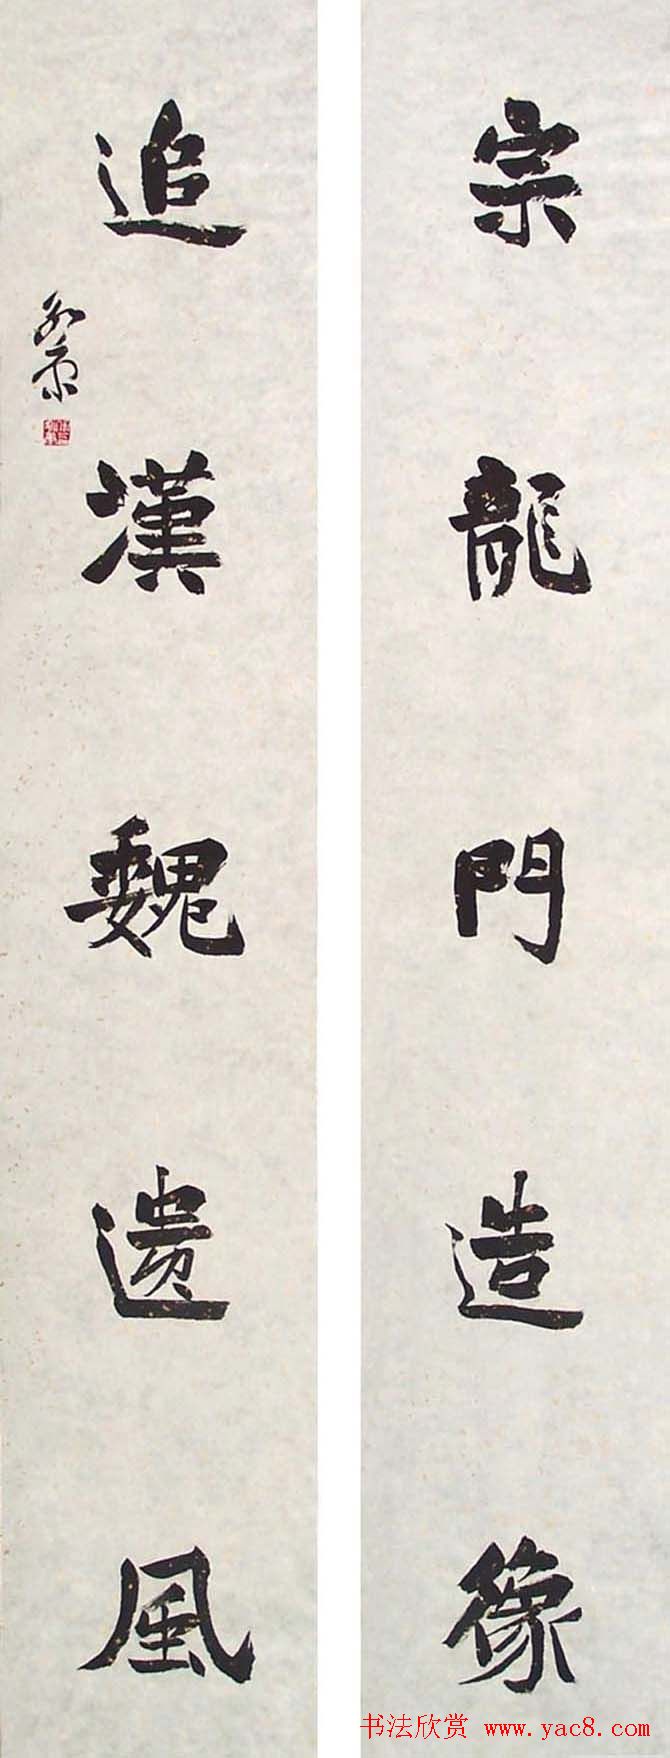 宗龍門造像
追漢魏遺風
书法欣赏 www.yac8.com